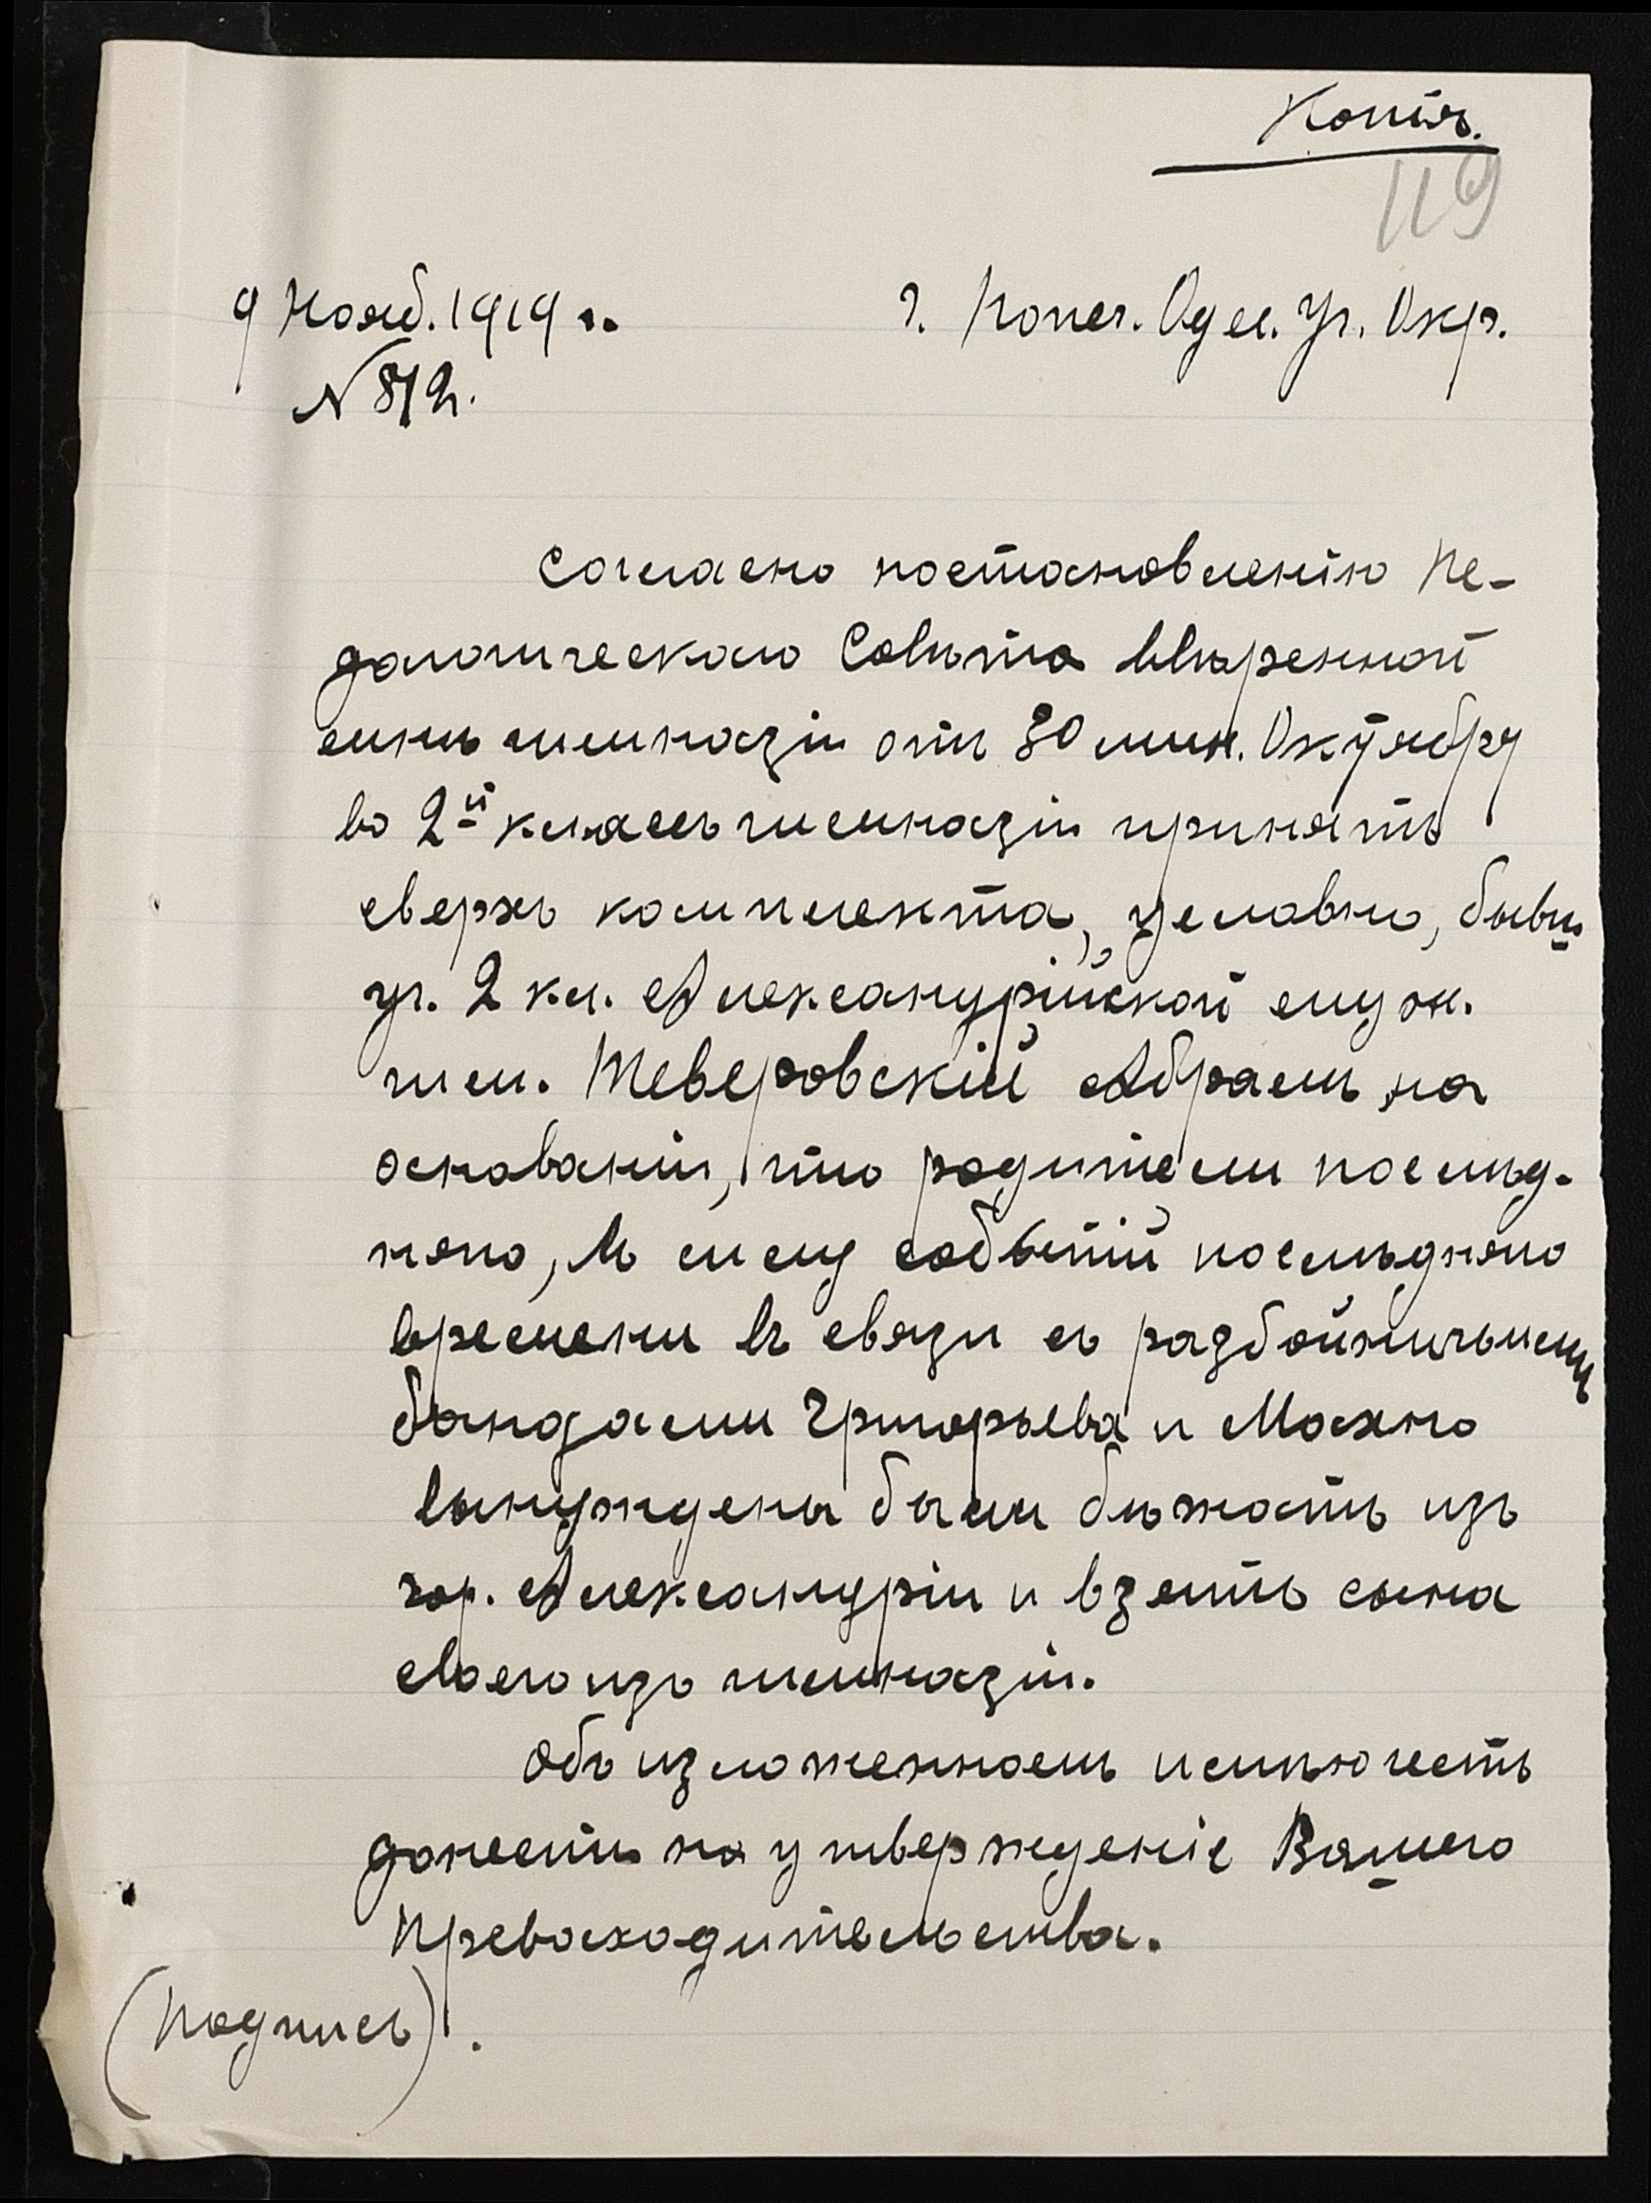 Копія.
119
9 Нояб. 1919 г. г. Попеч. Одес. Уч. Окр.
N 812.
Согласно постановленію Пе-
дагогическаго Совѣта ввѣренной
мнѣ гимназіи отъ 30 мин. Октября
во 2й классъ гимназіи принятъ
сверхъ комплекта, условно, бывш.
уч. 2 кл. Александрійской муж.
гим. Тверовскій Абрамъ на
основаніи, что родители послѣд-
няго, въ силу событій послѣдняго
времени въ связи съ разбойничьими
бандами Григорьева и Махно
вынуждены были бѣжать изъ
гор. Александріи и взять сына
своего изъ гимназіи.
Объ изложенномъ имѣю честь
донести на утвержденіе Вашего
Превосходительства.
(Подпись).